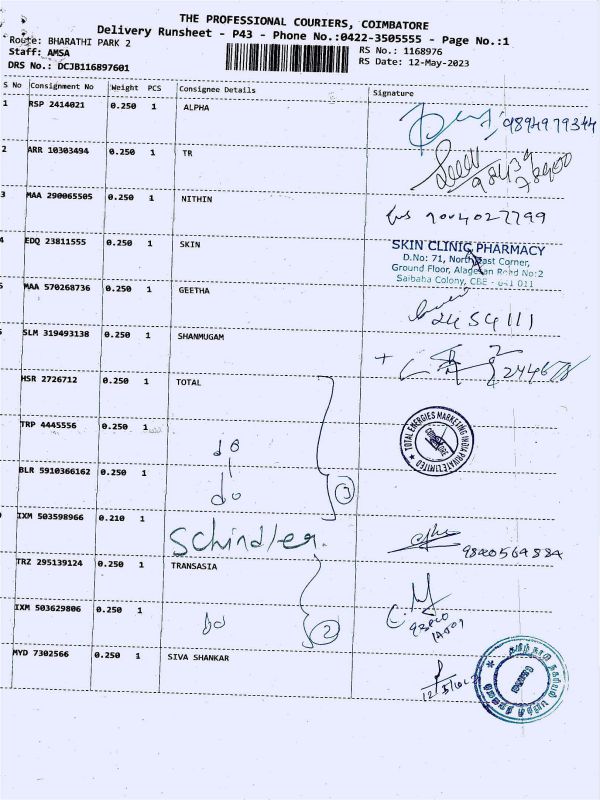 THE PROFESSIONAL COURIERS, COIMBATORE
Delivery Runsheet - P43 - Phone No.:0422-3505555 - Page No.:1
Route: BHARATHI PARK 2
RS No.: 1168976
Staff: AMSA
RS Date: 12-May-2023
DRS No.: DCJB116897601
S No Consignment No Weight PCS Consignee Details Signature
1 RSP 2414021 0.250 1 ALPHA
9894979344
2 ARR 10303494 0.250 1 TR
98439
78900
3 MAA 290065505 0.250 1 NITHIN
7004027799
4 EDQ 23811555 0.250 1 SKIN
SKIN CLINIC PHARMACY
D.No: 71, North East Corner,
Ground Floor, Alagesan Road No:2
Saibaba Colony, CBE - 641 011
MAA 570268736 0.250 1 GEETHA
2454111
SLM 319493138 0.250 1 SHANMUGAM
HSR 2726712 0.250 1 TOTAL
TOTAL ENERGIES MARKETING INDIA PRIVATE LIMITED
COIMBATORE
TRP 4445556 0.250 1
do
BLR 5910366162 0.250 1
do
3
IXM 503598966 0.210 1 Schindler.
9840564884
TRZ 295139124 0.250 1 TRANSASIA
IXM 503629806 0.250 1 do
2
MYD 7302566 0.250 1 SIVA SHANKAR